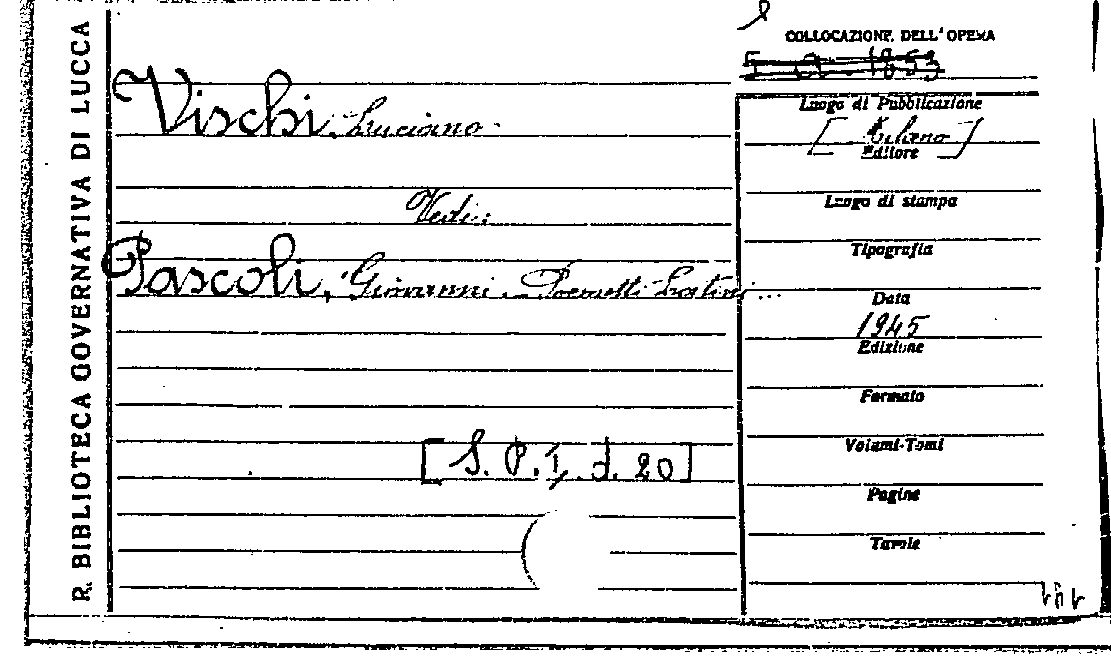 R. BIBLIOTECA GOVERNATIVA DI LUCCA
Vischi, Luciano.
Vedi:
Pascoli, Giovanni. Poemetti Latini...
[S. P. I. d. 20]
COLLOCAZIONE DELL'OPERA
Luogo di Pubblicazione
[Milano]
Editore
Luogo di stampa
Tipografia
Data
1945
Edizione
Formato
Volumi-Tomi
Pagine
Tavole